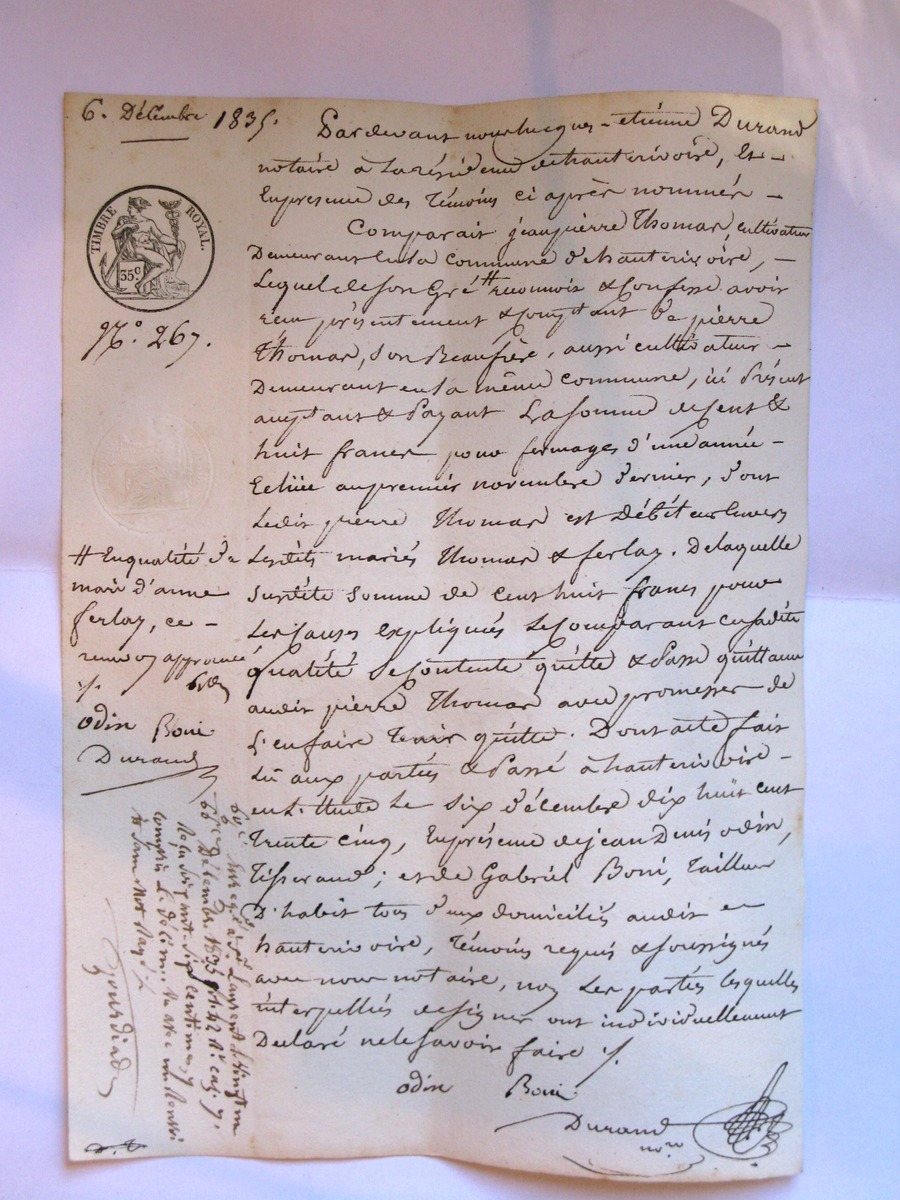 6. Décembre 1835.
TIMBRE ROYAL.
35c
N.° 267.
Pardevant nous Jacques-etienne Durand
notaire à la résidence de hauterivoire, Et
Enpresence des Témoins ci après nommés
Comparait jeanpierre Thomas, cultivateur
Demeurant en la commune d'hauterivoire,
Lequel de son Gré # reconnois & Confesse avoir
recu présentement & comptant de pierre
Thomas, son Beaufrère, aussi cultivateur
Demeurant en la même commune, ici Présent
acceptant & Payant La somme de Cent &
huit francs pour fermages d'une année
Echüe au premier novembre dernier, dont
Ledit pierre Thomas est Débiteur Envers
Lesdits mariés Thomas & ferlay. De laquelle
Susdite Somme de Cent huit francs pour
Les Causes Expliqués Le Comparant en sadite
qualité Se Contente quitte & Passe quittance
audit pierre Thomas avec promesses de
L'en faire Tenir quitte. Dont acte fait
Lû aux parties & Passé à hauterivoire
en L'Etude Le Six Décembre dix huit cent
Trente Cinq, En présence de jean Denis odin,
Tisserand; et de Gabriel Boni, Tailleur
D'habit tous deux domiciliés audit
hauterivoire, Témoins requis & soussignés
avec nous notaire, non Les parties lesquelles
interpellés de signer ont individuellement
Declaré ne le savoir faire ./.
odin Boni
Durand
nore
# En qualité de
mari d'anne
ferlay, ce
renvoi approuvé
./.
odin Boni
Durand
St Laurent de
Décembre 1835
centimes
compris Le décime
Gourdiad